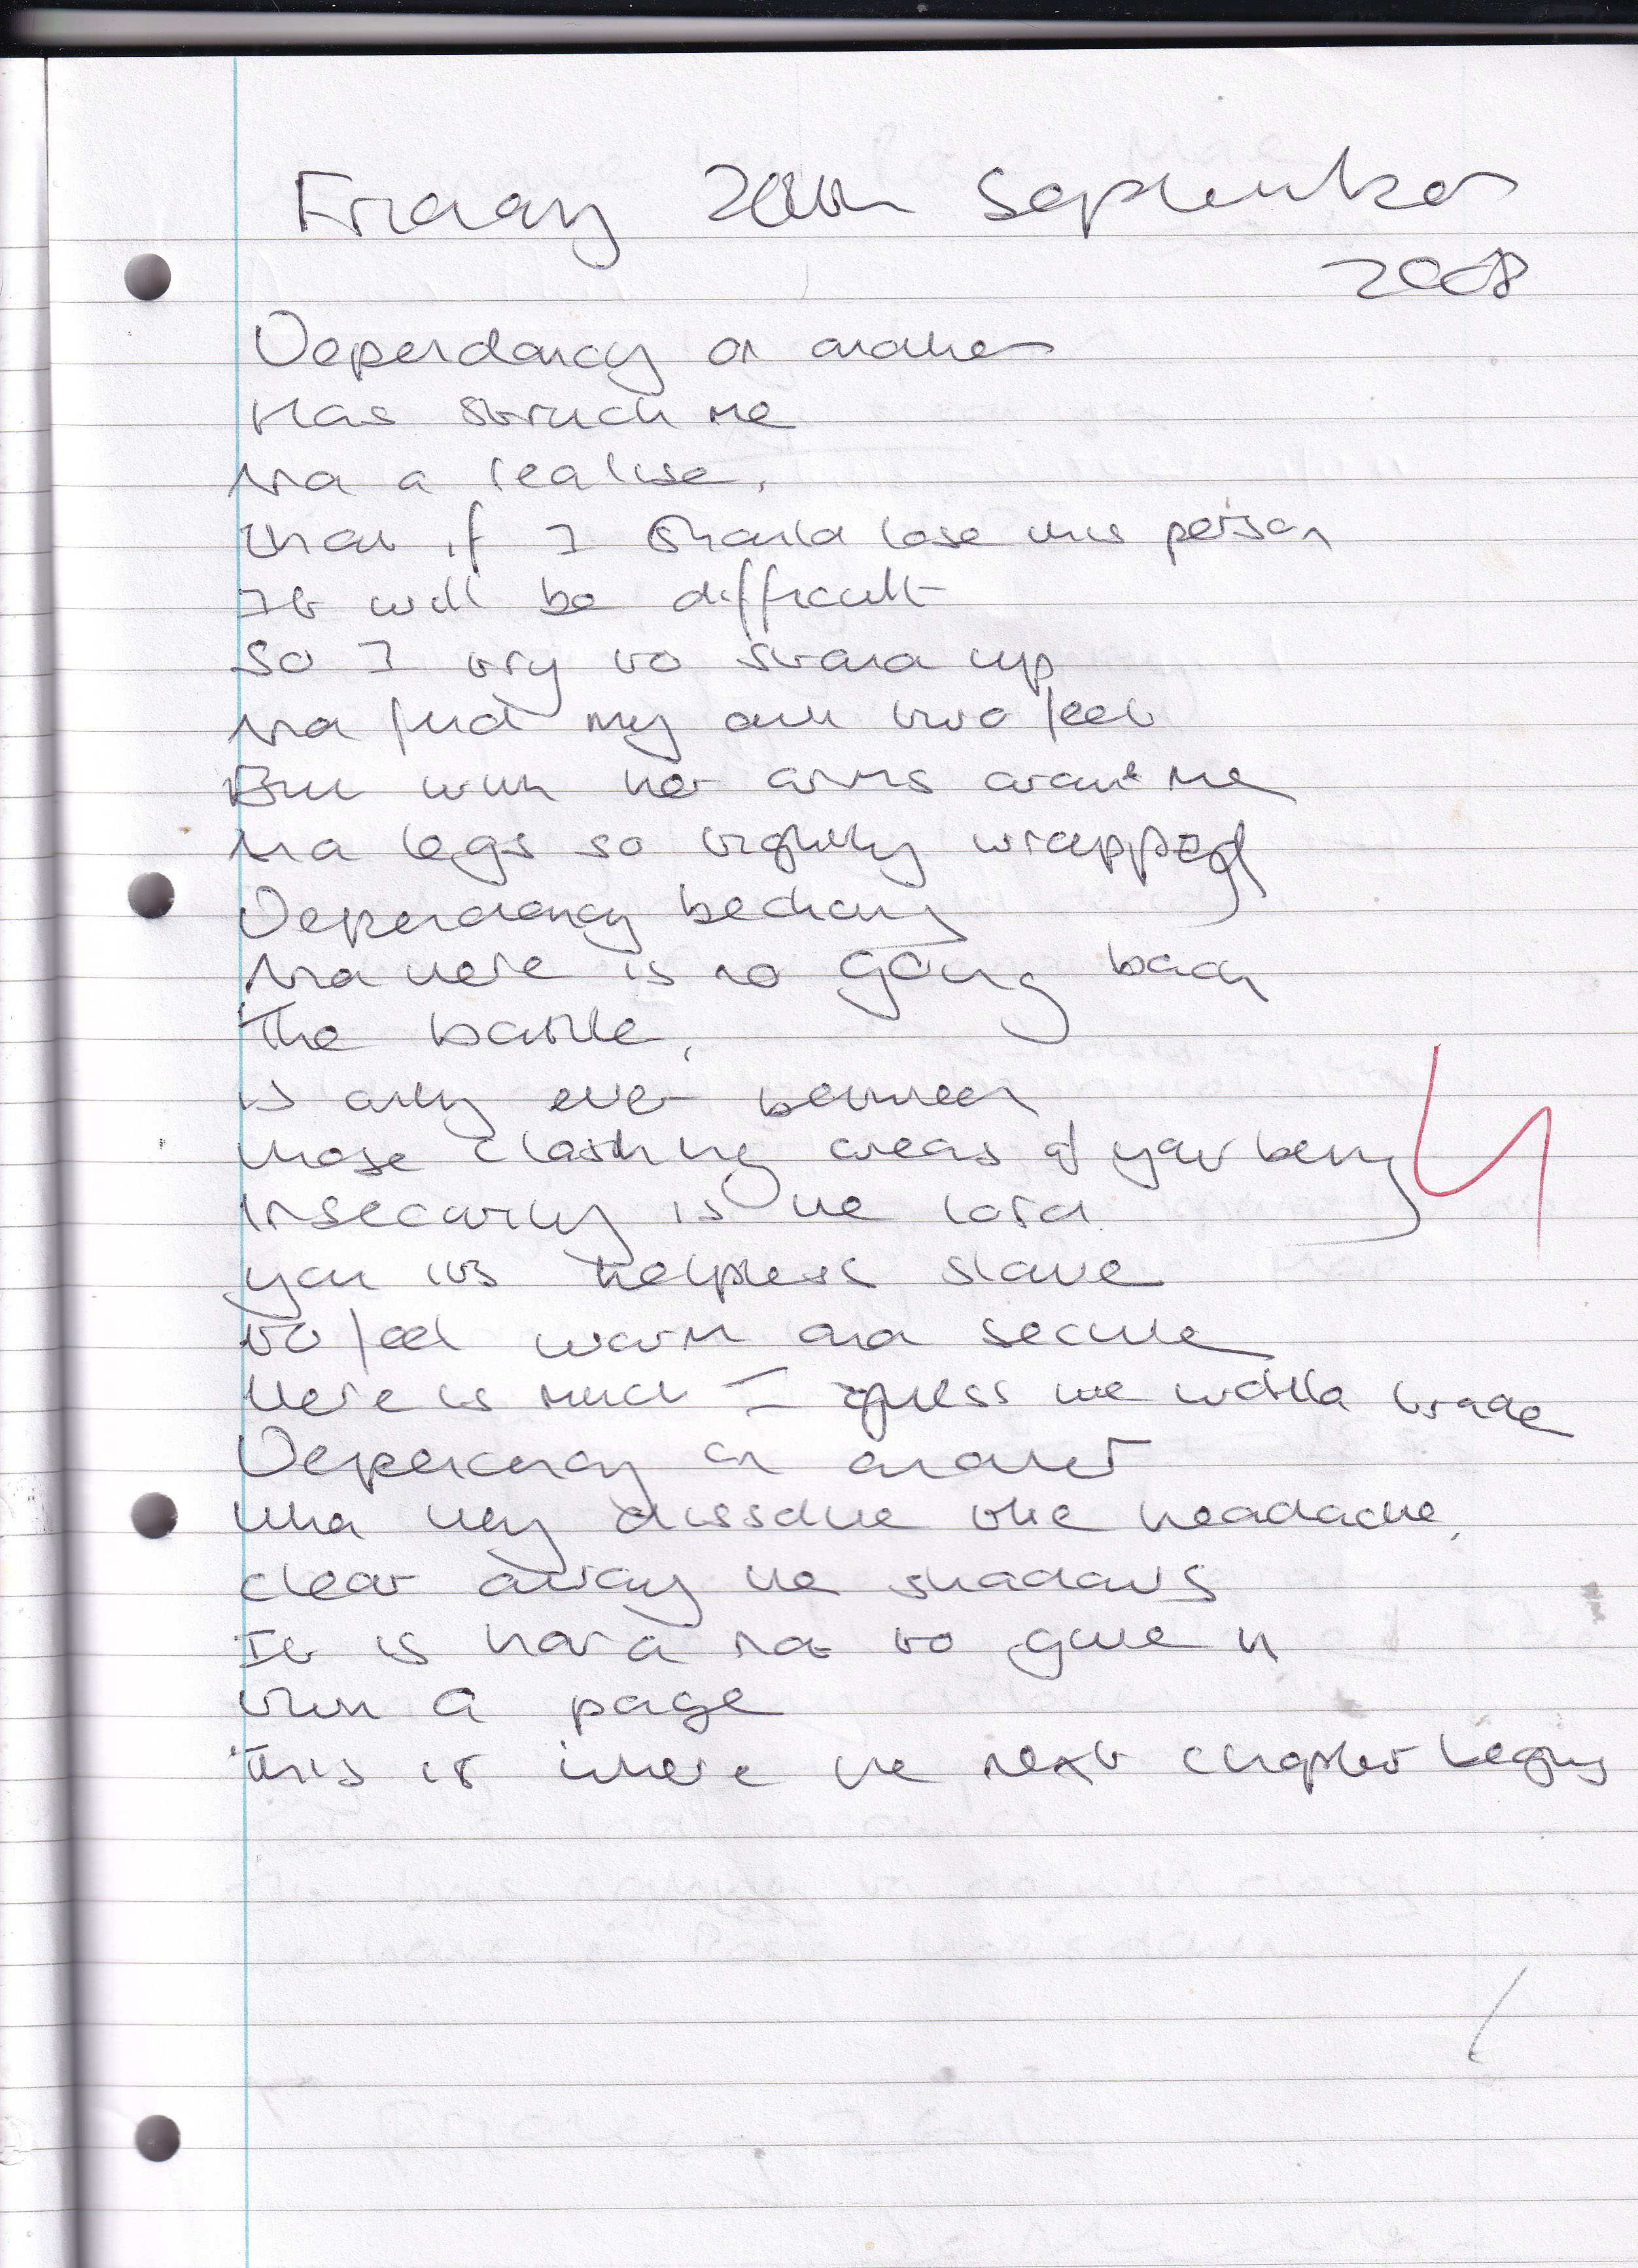 Friday September
2008
Dependancy on another
Has struck me
And a realise,
that if I should lose this person
It will be difficult
So I try to stand up
And find my own two feet
But with her arms around me
And legs so tightly wrapped
Dependancy
And there is no going back
The battle,
is only ever between
those clashing areas of your being
Insecurity is the lord
you its helpless slave
to feel warm and secure
there is much I guess we trade
Dependancy on another
they dissolve the headache,
clear away the shadows
It is hard not to give in
turn a page
This is where the next chapter begins